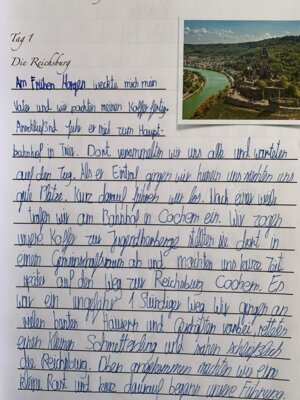 Tag 1
Die Reichsburg
Am Frühen Morgen weckte mich mein
Vater und wir packten meinen Koffer fertig.
Anschließend fuhr er mich zum Haupt-
bahnhof in Trier. Dort versammelten wir uns alle und warteten
auf den Zug. Als er Eintraf gingen wir hinein uns
gute Plätze. Kurz darauf fuhren wir los. Nach einer weile
trafen wir am Bahnhof in Cochem ein. Wir zogen
unsere Koffer zur Jugendherberge stellten sie dort in
einem Gemeinschaftsraum ab und machten uns kurze Zeit
später auf den weg zur Reichsburg Cochem. Es
war ein ungefähr 1 Stündiger weg. Wir gingen an
vielen bunten Häusern und Geschäften vorbei retteten
einen kleinen Schmetterling und sahen schließlich
die Reichsburg. Oben angekommen machten wir eine
kleine Rast und kurz daraufhin begann unsere Führung.